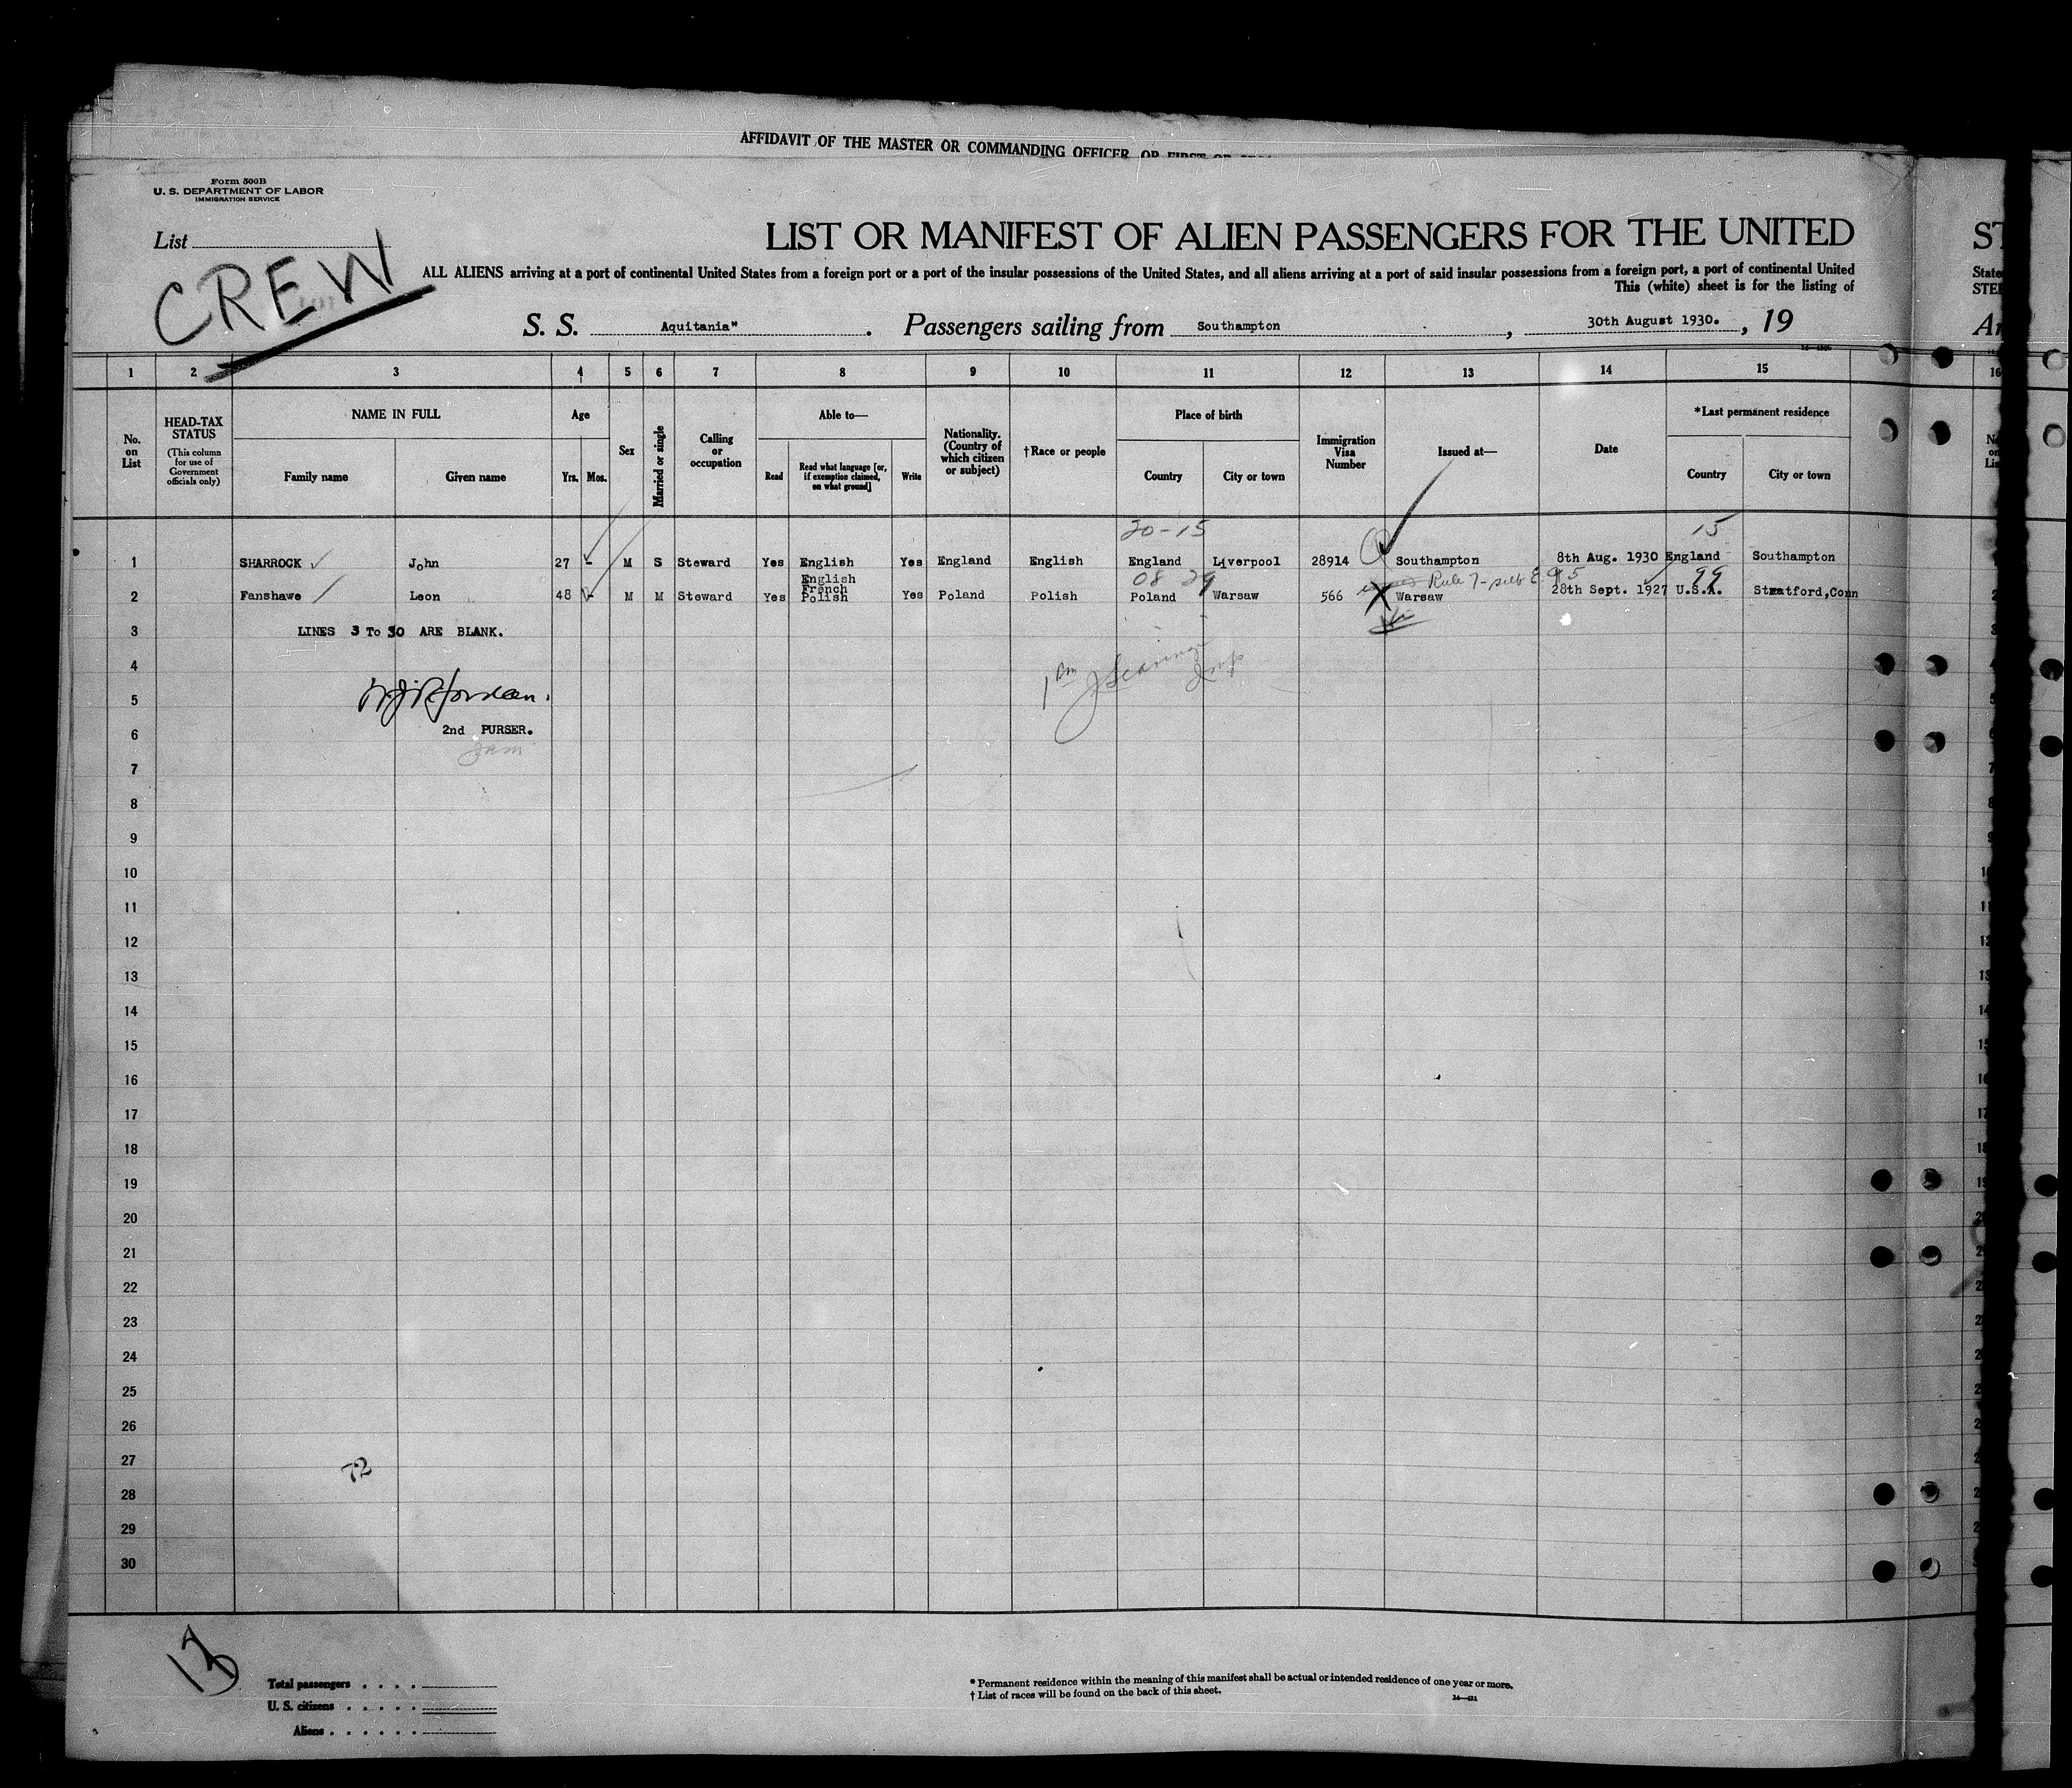 AFFIDAVIT OF THE MASTER OR COMMANDING OFFICER, OR FIRST OR
Form 500B
U. S. DEPARTMENT OF LABOR
IMMIGRATION SERVICE
List
CREW
LIST OR MANIFEST OF ALIEN PASSENGERS FOR THE UNITED
ALL ALIENS arriving at a port of continental United States from a foreign port or a port of the insular possessions of the United States, and all aliens arriving at a port of said insular possessions from a foreign port, a port of continental United
This (white) sheet is for the listing of
S. S. Aquitania" . Passengers sailing from Southampton , 30th August 1930. , 19
1 2 3 4 5 6 7 8 9 10 11 12 13 14 15
No. on List
HEAD-TAX STATUS
(This column for use of Government officials only)
NAME IN FULL
Family name Given name
Age
Yrs. Mos.
Sex
Married or single
Calling or occupation
Able to—
Read
Read what language [or, if exemption claimed, on what ground]
Write
Nationality. (Country of which citizen or subject)
†Race or people
Place of birth
Country City or town
Immigration Visa Number
Issued at—
Date
*Last permanent residence
Country City or town
20-15 15
1 SHARROCK John 27 - M S Steward Yes English Yes England English England Liverpool 28914 Southampton 8th Aug. 1930 England Southampton
English 08 29 Rule 7- sub E 99
French
2 Fanshawe Leon 48 - M M Steward Yes Polish Yes Poland Polish Poland Warsaw 566 Warsaw 28th Sept. 1927 U.S.A. Stratford,Conn
3 LINES 3 To 30 ARE BLANK.
4
5
2nd PURSER.
6
7
8
9
10
11
12
13
14
15
16
17
18
19
20
21
22
23
24
25
26
27
72
28
29
30
13
Total passengers . . . .
U. S. citizens . . . . .
Aliens . . . . . .
* Permanent residence within the meaning of this manifest shall be actual or intended residence of one year or more.
† List of races will be found on the back of this sheet.